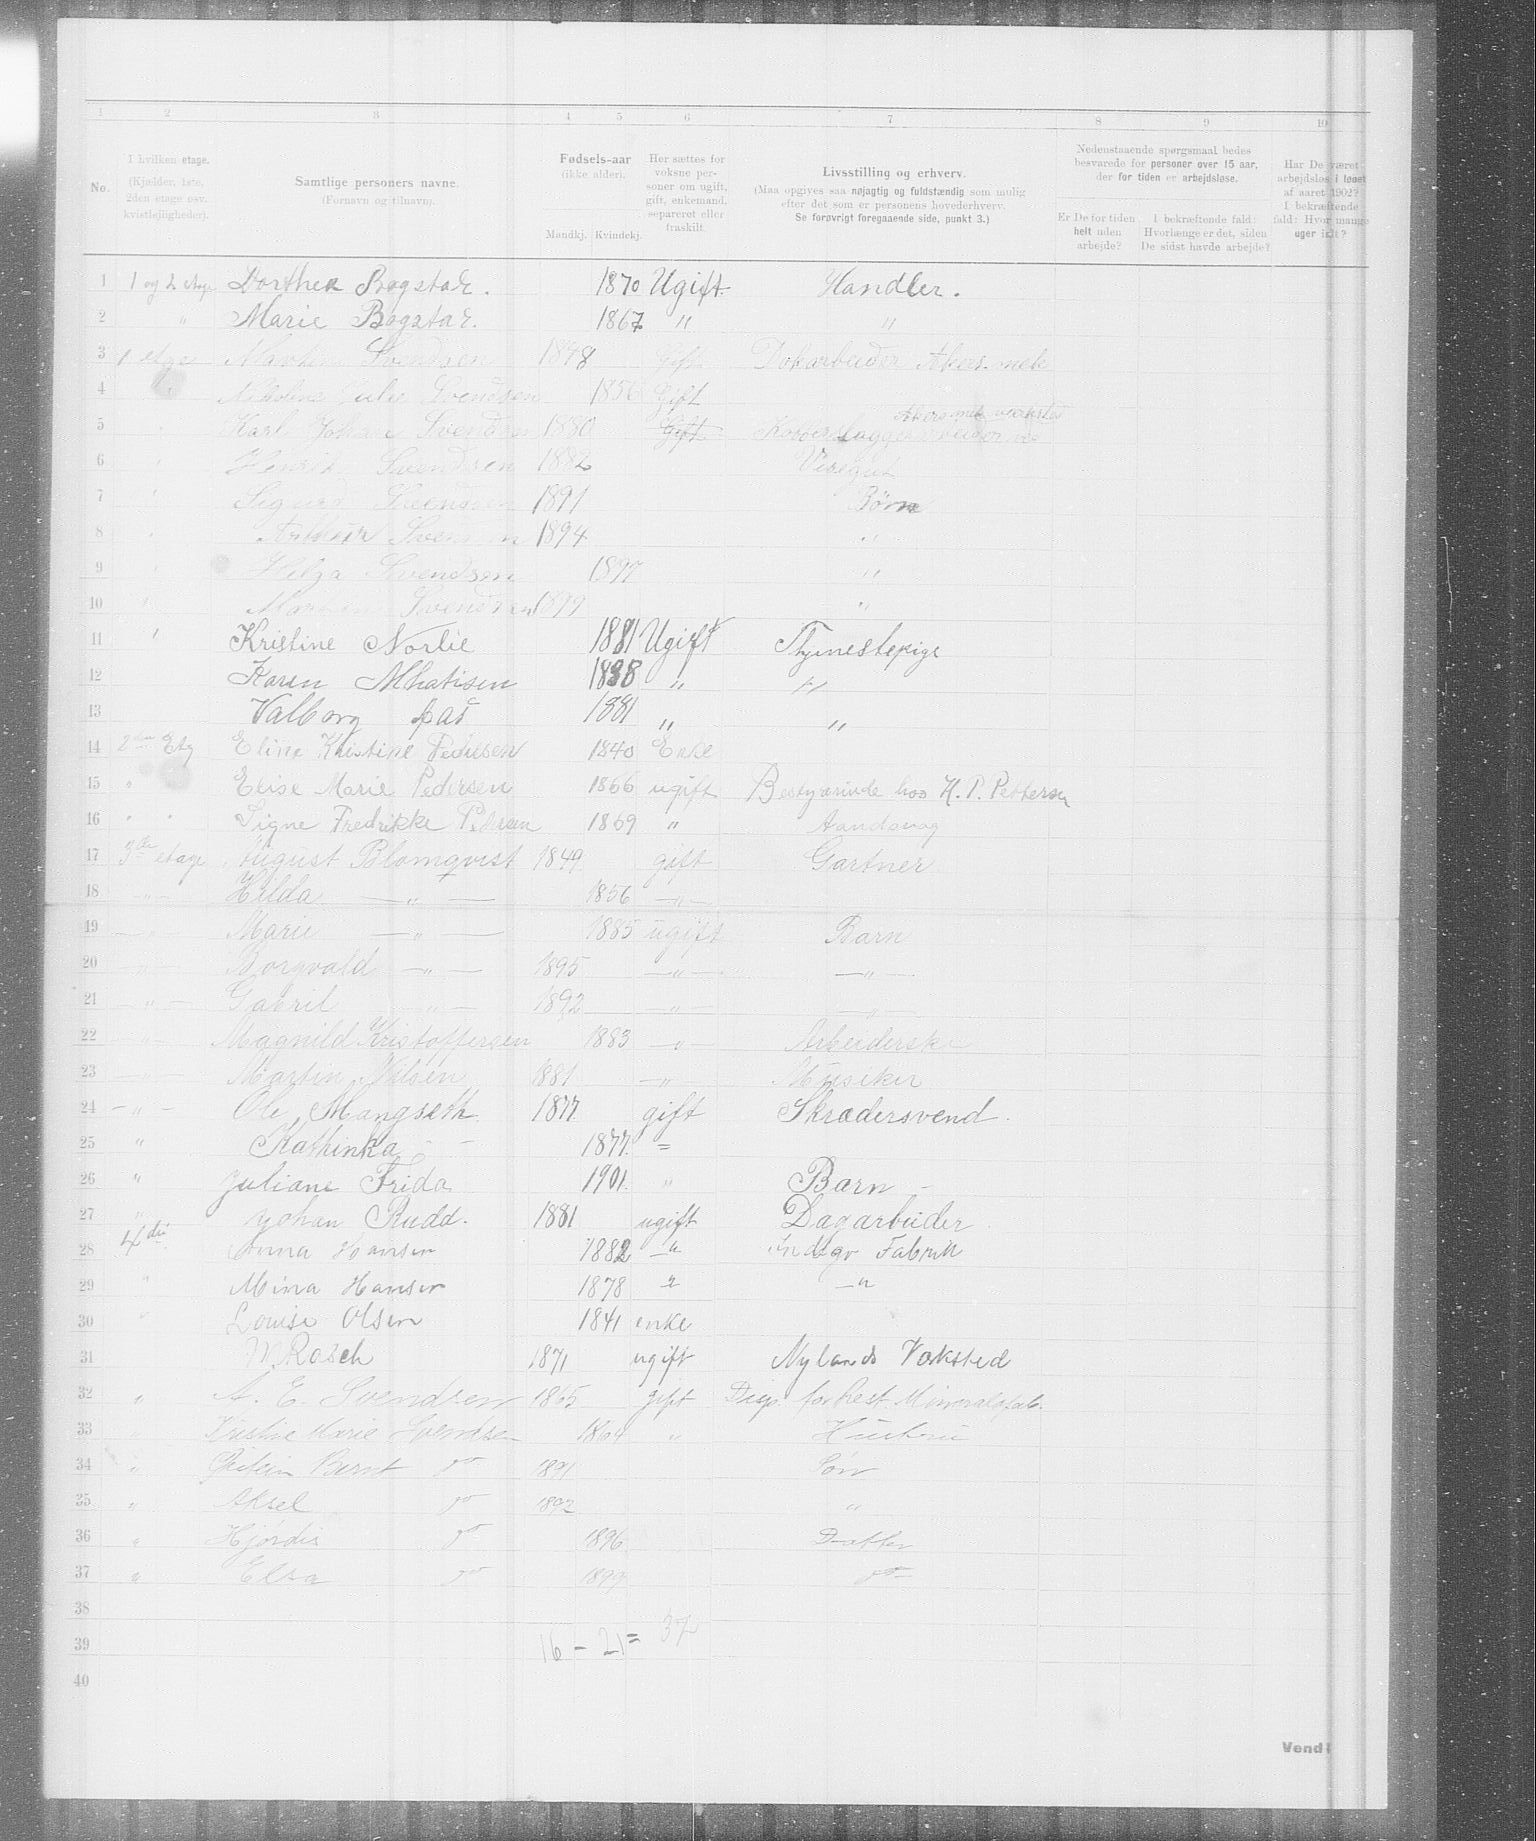 1 2 3 4 5 6 7 8 9 10
No.
I hvilken etage.
(Kjælder, 1ste, 2den etage osv. kvistleiligheder).
Samtlige personers navne.
(Fornavn og tilnavn).
Fødsels-aar
(ikke alder).
Mandkj. Kvindekj.
Her sættes for voksne personer om ugift, gift, enkemand, separeret eller fraskilt.
Livsstilling og erhverv.
(Maa opgives saa nøjagtig og fuldstændig som mulig efter det som er personens hovederhverv.
Se forøvrigt foregaaende side, punkt 3.)
Nedenstaaende spørgsmaal bedes besvarede for personer over 15 aar, der for tiden er arbejdsløse.
Er De for tiden helt uden arbejde?
I bekræftende fald: Hvorlænge er det, siden De sidst havde arbejde?
Har De været arbejdsløs i løbet af aaret 1902? I bekræftende fald: Hvor mange uger ialt?
1 1 og 2 etage Dorthea Bogstad. 1870 Ugift Handler.
2 " Marie Bogstad. 1867 " "
3 1 etage Svendsen 1848 Gift Dokarbeider Akers mek
4 " Julie Svendsen 1856 Gift
Akers mek værksted
5 " Karl Johan Svendsen 1880 Gift
6 " Henrik Svendsen 1882
7 " Sigurd Svendsen 1891 Børn
8 " Arthur Svendsen 1894 "
9 " Helga Svendsen 1897 "
10 " Svendsen 1899 "
11 " Kristine Norlie 1881 Ugift Tjenestepige
12 Karen Mhatisen 1888 " "
13 Valborg 1881 " "
14 2den Etg Eline Kristine Pedersen 1840 Enke
15 " Elise Marie Pedersen 1866 ugift Bestyrerinde hos H. P. Pettersen
16 " " Signe Fredrikke Pedersen 1869 " Aandsvag
17 3die etage August Blomqvist 1849 gift Gartner
18 — " — Hilda — " — 1856 — " —
19 — " — Marie — " — 1885 ugift Barn
20 — " — Borgvald — " — 1895 — " — — " —
21 — " — Gabril — " — 1892 — " — — " —
22 — " — Magnild Kristoffersen 1883 — " — Arbeiderske
23 — " — Martin Nilsen 1881 — " — Musiker
24 — " — Ole Mangseth 1877 gift Skrædersvend.
25 " Kathinka — " — 1877. =
26 " Juliane Frida 1901. " Barn —
27 " Johan Rudd. 1881 ugift Dagarbeider
28 4die Anna Hansen 1882 — " Indigo Fabrik
29 " Mina Hansen 1878 " — "
30 " Louise Olsen 1841 enke
31 M. Rasch 1871 ugift Nylands Værksted
32 " A. E. Svendsen 1865 gift Disp. for Mineralfab.
33 " Kristine Marie Svendsen 1864 " Hustru
34 " Bernt do 1891 Søn
35 " Aksel do 1892 "
36 " Hjørdis do 1896 Datter
37 " Elsa do 1899 do
38
39 16 – 21 = 37
40
Vend!